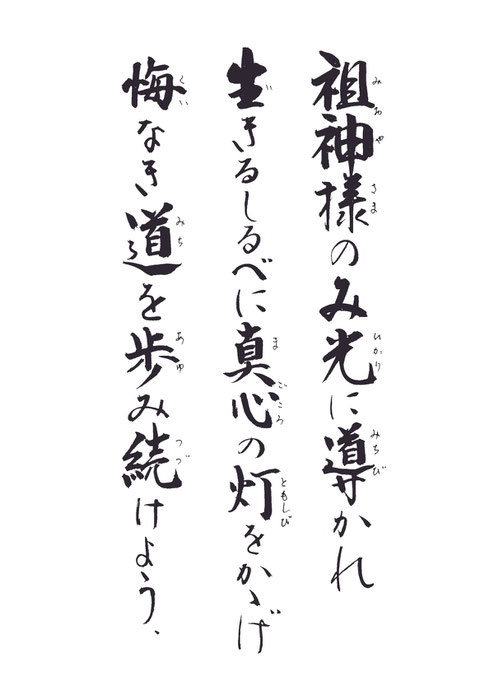 祖神様のみ光に導かれ
生きるしるべに真心の灯をかゝげ
悔なき道を歩み続けよう、